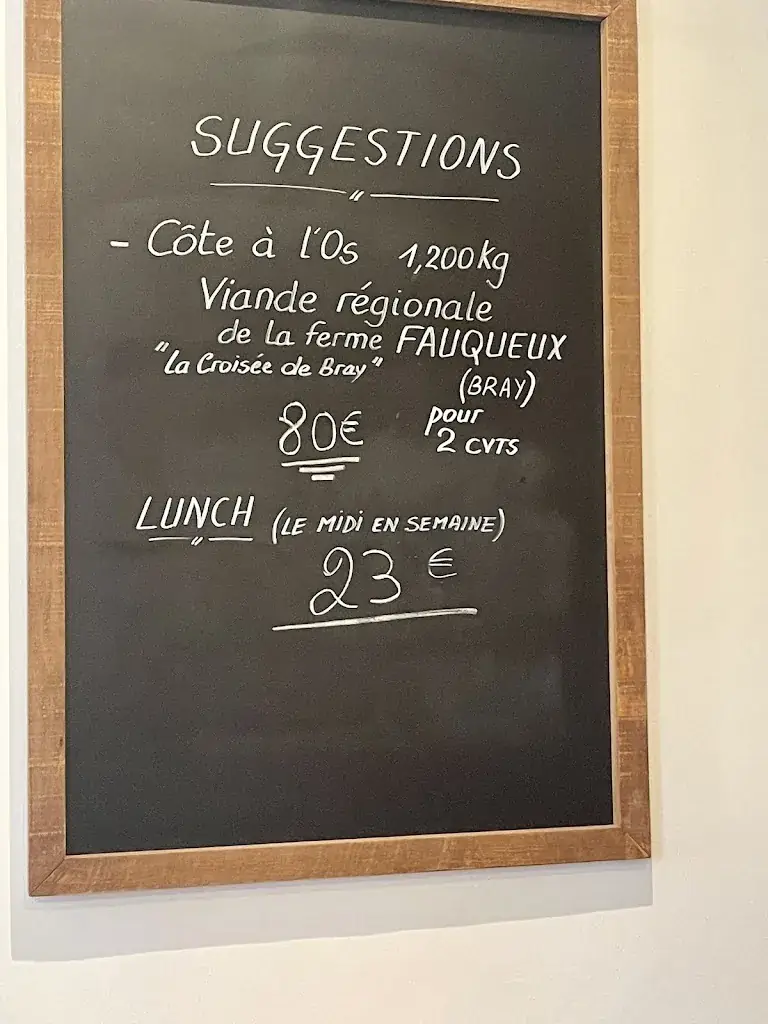 SUGGESTIONS
- Côte à l'Os 1,200kg
Viande régionale
de la ferme FAUQUEUX
"La Croisée de Bray"
(BRAY)
80€
pour
2 CVTS
LUNCH (LE MIDI EN SEMAINE)
23 €